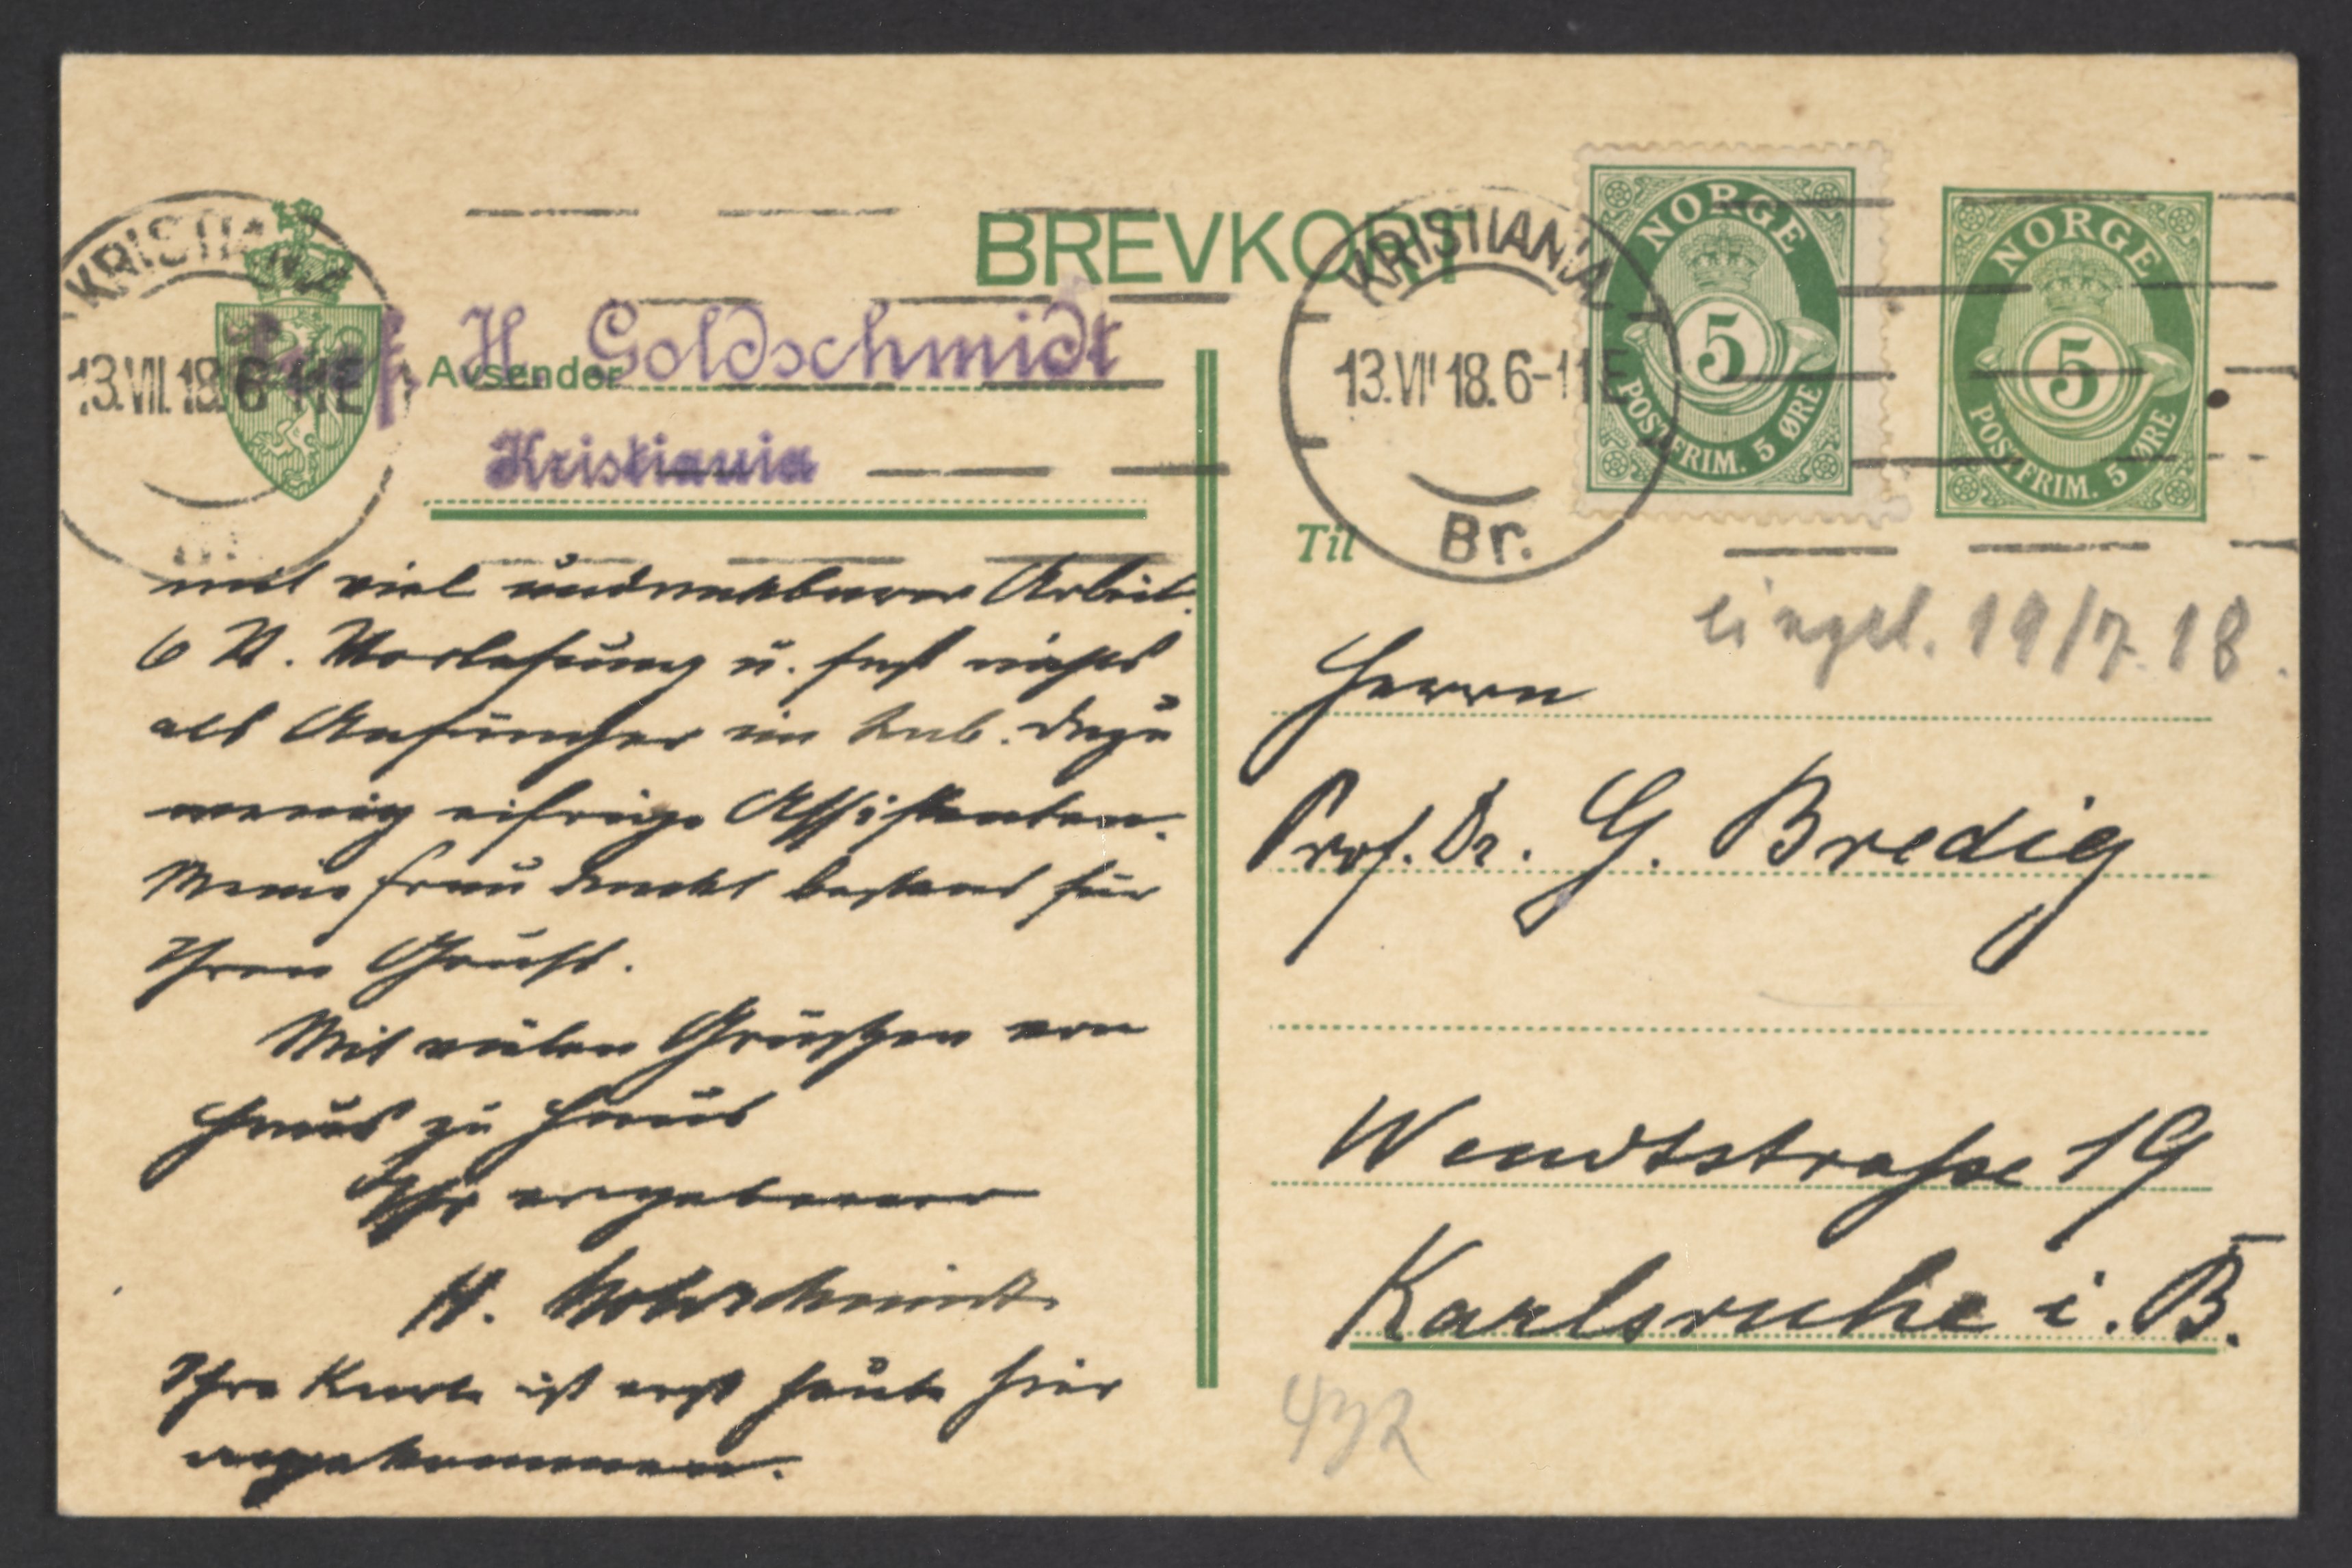 BREVKORT
KRISTIANIA
13.VII.18.6-11E
KRISTIANIA
13.VII.18.6-11E
Br.
NORGE
5
POSTFRIM. 5 ØRE
NORGE
5
POSTFRIM. 5 ØRE
Avsender
Prof. H. Goldschmidt
Kristiania
mit viel undankbarer Arbeit.
6 St. Vorlesung u. fast nichts
als Anfänger im Lab. Dazu
wenig eifrige Assistenten.
Meine Frau dankt bestens für
Ihren Gruß.
Mit vielen Grüßen von
Haus zu Haus
Ihr ergebener
H. Goldschmidt
Ihre Karte ist erst heute hier
angekommen.
Til
eingel. 19/7. 18.
Herrn
Prof. Dr. G. Bredig
Wendtstraße 19
Karlsruhe i. B.